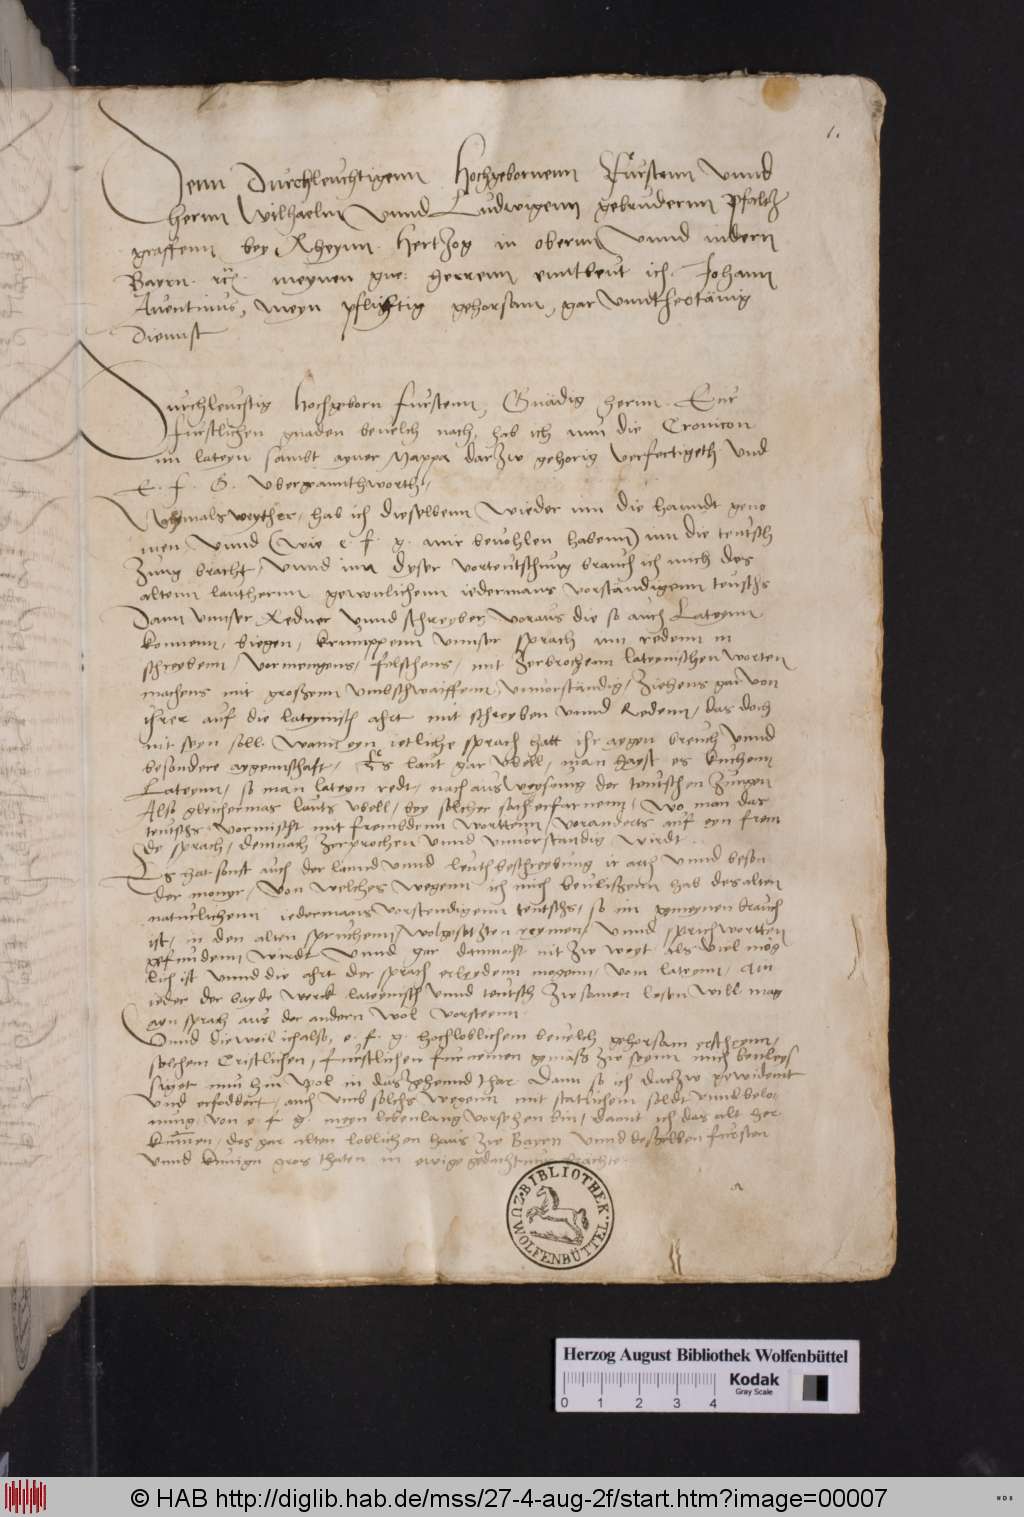 1.
Denn Durchleuchtigenn Hochgebornenn Fürstenn Vnnd
herrn Wilhaelm Vnnd Ludwigenn gebrudernn Pfaltz
graffenn bey Rheynn. Hertzog in obernn Vnnd nidern
Bayrn. rc. meynen gne: herrenn enntbeut ich. Johann
Auentinus, meyn pflichtig gehorsam, gar Vnntherthänig
Diennst
Durchleuchtig Hochgeborn furstenn, Gnädig herrn. Eur
fürstlichen gnaden beuelch nach, hab ich nun die Cronicon
im lateyn sambt ayner Mappa darzw gehorig verfertigeth Vnd
E. f. G. vbergannthworth,
Nochmals weyther, hab ich dieselbenn wieder inn die hanndt geno
men, Vnnd (wie e. f. g. mir beuohlen habenn) inn die teutsch
Zung bracht, Vnnd inn dyser vorteutschung brauch ich mich des
altenn lautherm gewonlichenn iedermans vorständigenn teutschs
Dann vnnser Redner Vnnd schreyber voraus die so auch Lateynn
konnenn, biegen, krumppenn vnnser sprach im redenn in
schreybenn, vormengens, felschens, mit Zerbrochenn lateynischen worten
machens mit großenn vmbschwaiffenn, vnuorständig, Ziehens gar von
ihrer auf die lateynisch ahrt mit schreyben vnnd Redenn, das doch
nit seyn soll. Wann eyn ietliche sprach hatt ihr aygen breuch Vnnd
besondere aygennschaft, Es laut gar vbell, man hayst es kuchenn
Lateynn, so man lateyn redt, nach ausweysung der teutschen Zungen
Also gleichermas lauts vbell, bey solcher sach erfarnenn, wo man das
teutschs vormischt mit frembdenn worttenn, voranderts auf eyn frem
de sprach, demnach Zerprochen vnnd vnuorstandig wirdt.
Es hat sonst auch der lannd vnnd leuth beschreybung ir arth Vnnd beson
der monyr, Von welches wegenn ich mich beulissenn hab des alten
naturlichenn iedermans vorstendigenn teutschs, so im gemeynen brauch
ist, in den alten spruchenn, wolgesetzten reymen, vnnd sprichwortten
gefundenn wirdt Vnnd gar dannocht nit zw weyt als viel mög
lich ist vnnd die ahrt der sprach erleydenn mogenn, vom lateynn, Ain
ieder der bayde werck lateynisch vnnd teutsch zwsamen lesen will mag
ayn sprach aus der andern wol vorsteenn.
Vnnd dieweil ich also, e. f. g. hochloblichem beuelch gehorsam erscheynn,
solchem Cristlichen, furstlichen furnemen gemäss zw seynn mich beuleys
siget nun hin vol in das zehennd Jhar Dann so ich darzw gewidemt
vnd erfoddert, auch vmb solchs wegenn mit statlichem soldt vnnd belo-
nung, von e. f. g. meyn lebenlang vorsehen bin, damit ich das alt her
kummen, des gar alten loblichen haus zw Bayrn vnnd desselben fursten
vnnd kunign gros thaten in ewige gedachtnus brachte.
BIBLIOTHEK
ZU WOLFENBÜTTEL
Herzog August Bibliothek Wolfenbüttel
0 1 2 3 4
Kodak
Gray Scale
© HAB http://diglib.hab.de/mss/27-4-aug-2f/start.htm?image=00007